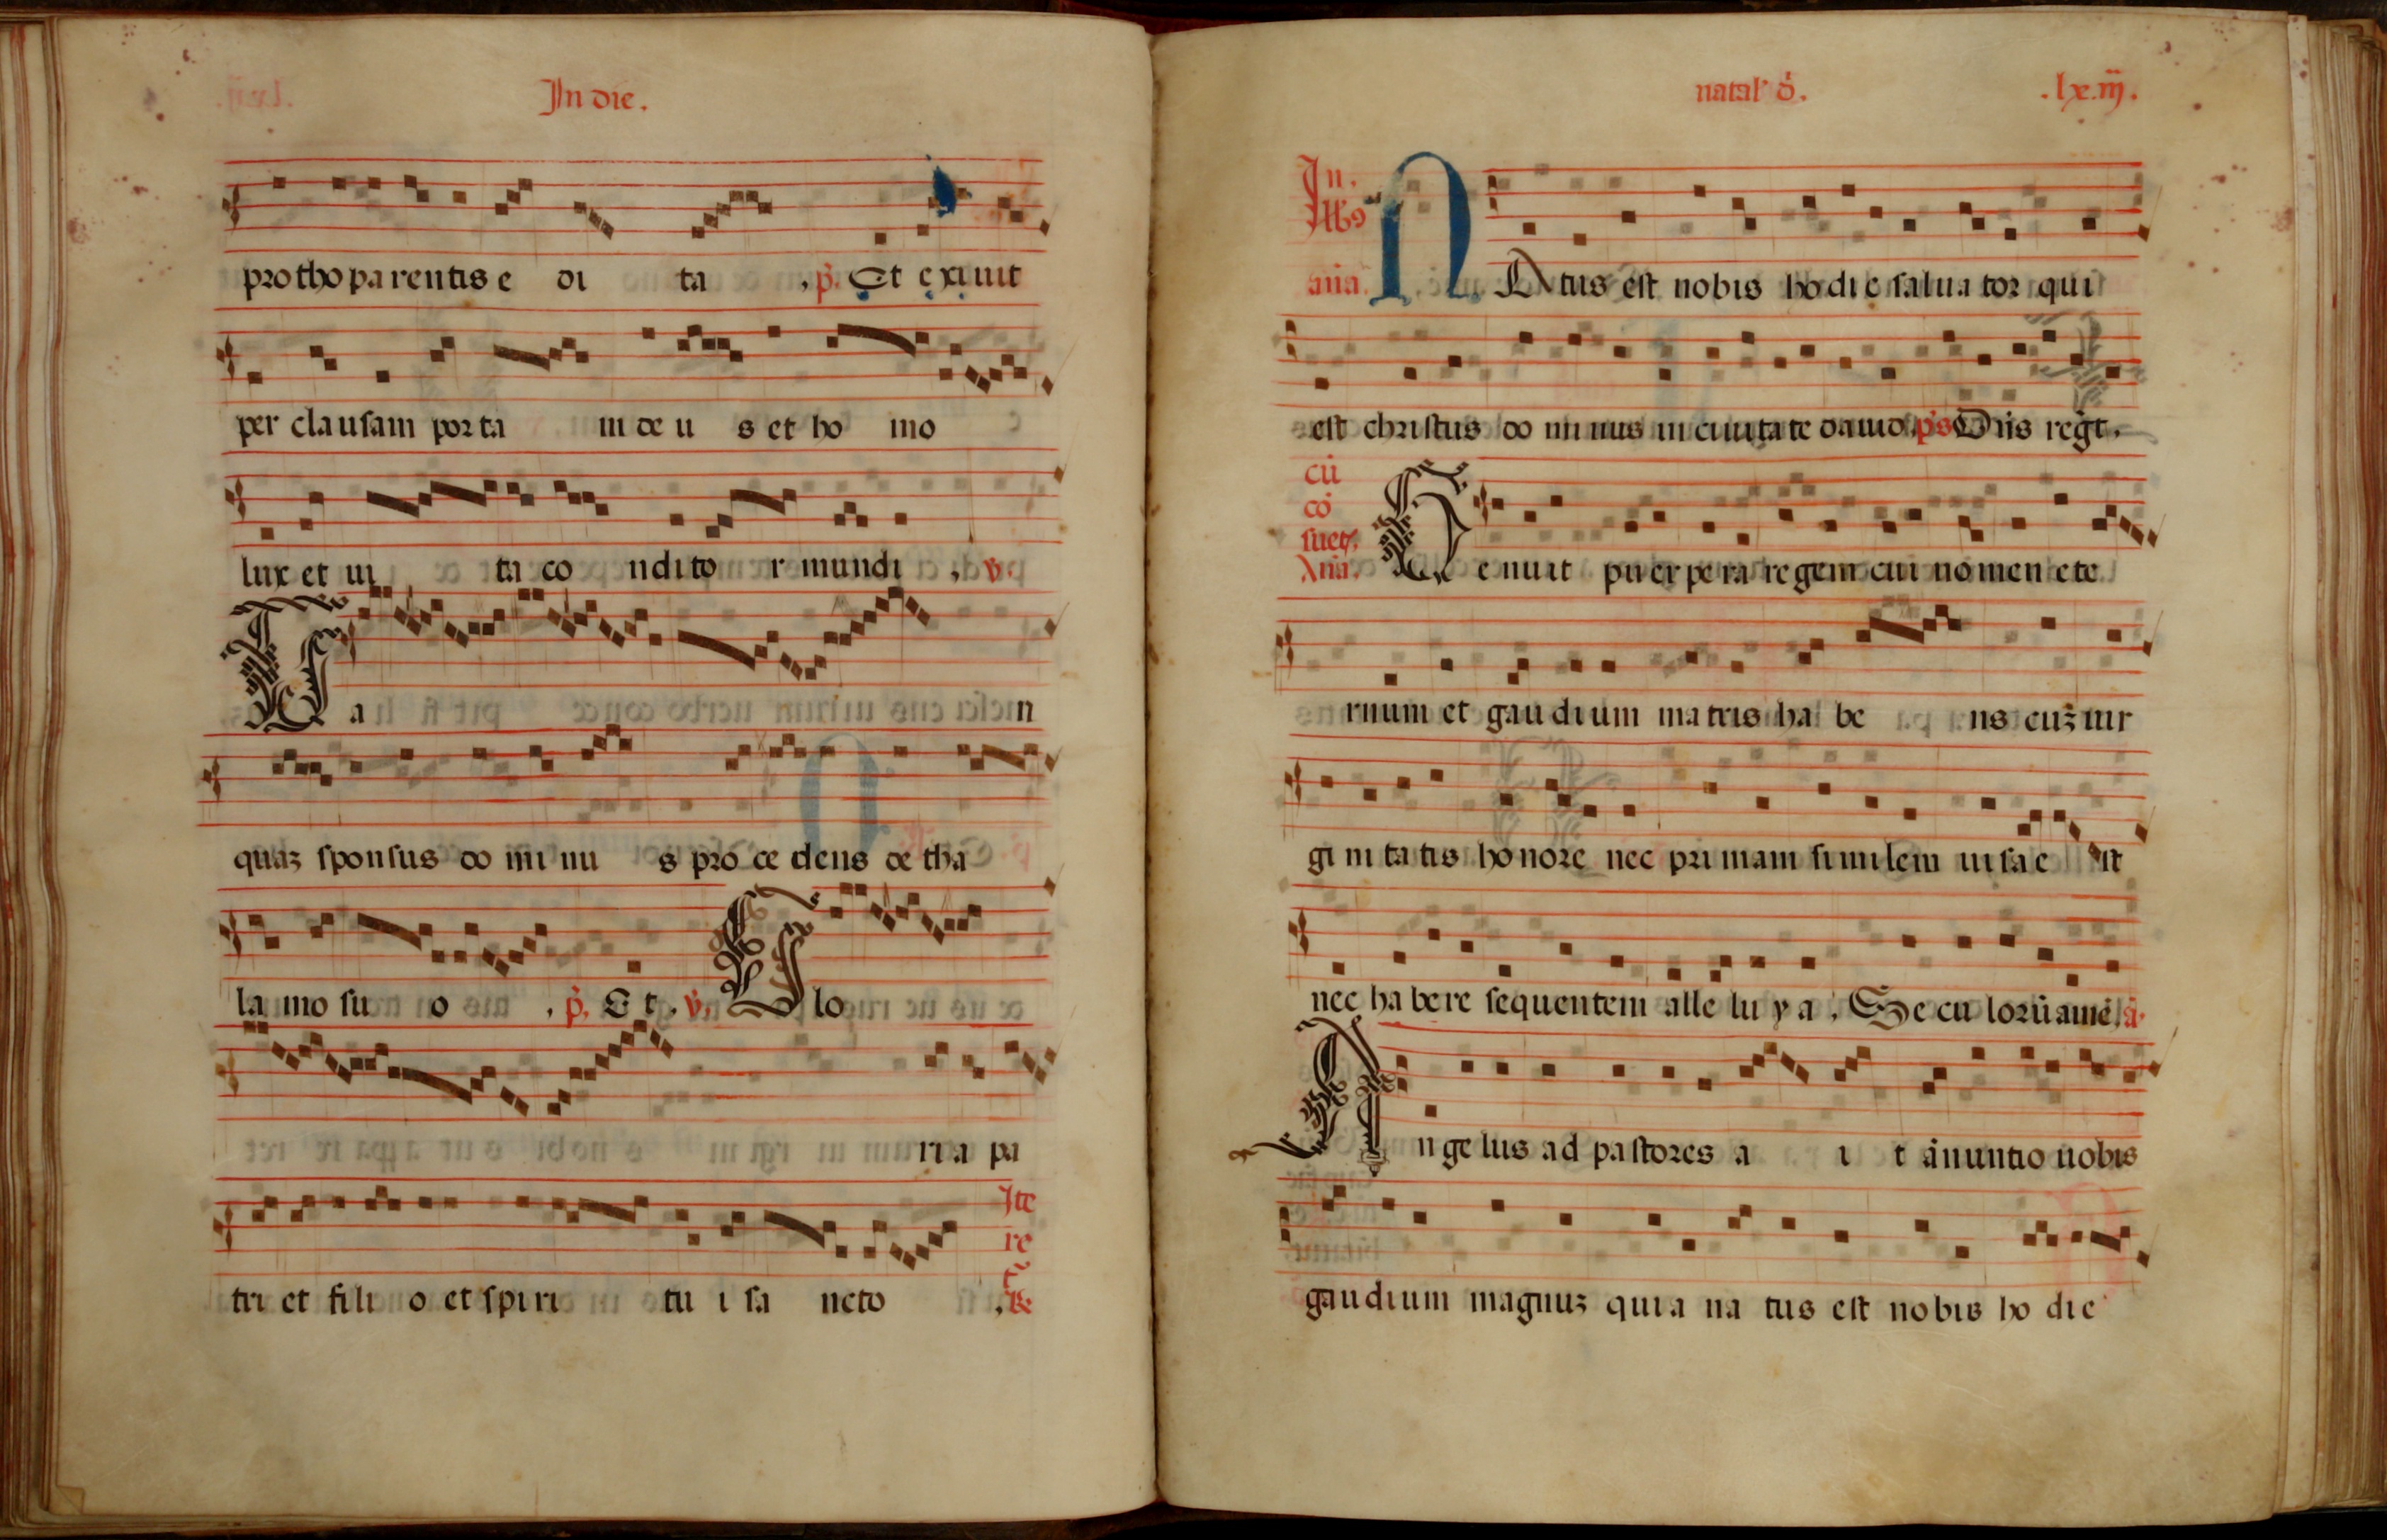 In die.
prothoparentis e di ta . p̄. Et exiuit
per clausam porta m de u s et ho mo
lux et ui ta co ndito r mundi . v.
Ta n
quaz sponsus do mi nu s pro ce dens de tha
la mo su o . p̄. Et . v. Glo
ri a pa
tri et fili o et spiri tu i sa ncto .
Ite
re
natal' d. .lx.iij.
In
aña. NAtus est nobis hodie salua tor qui
est christus do mi nus in ciuitate dauid. ps Dñs regt.
cū
cō
suet.
Añā. Genuit puerpera regem cui nomen ete
rnum et gaudium matris ha be ns cuz uir
gi ni ta tis honore nec primam similem uisa e st
nec habere sequentem alle lu y a . Seculorū amē. ā.
Angelus ad pastores a i t ānuntio uobis
gaudium magnuz quia na tus est nobis ho die